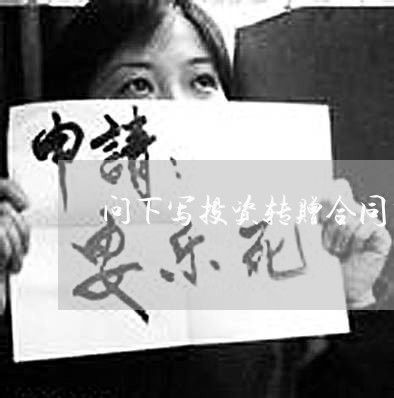 申請：
问下写投资转赠合同
安乐死